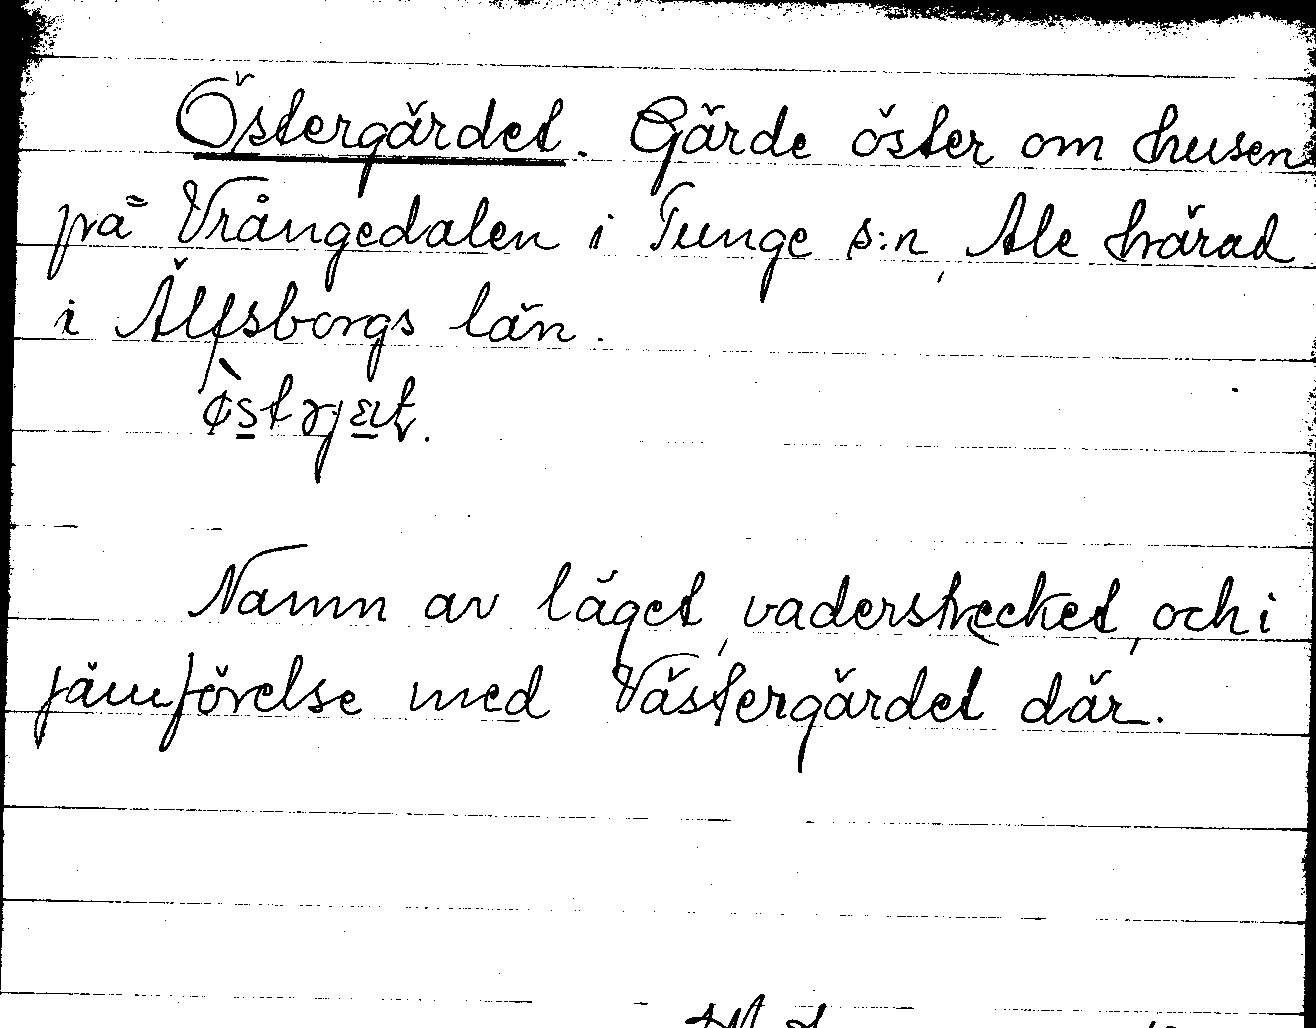 Östergärdet. Gärde öster om husen
på Vrångedalen i Tunge s:n, Ale härad
i Älfsborgs län.
Namn av läget, vaderstrecket, och i
jämförelse med Västergärdet där.